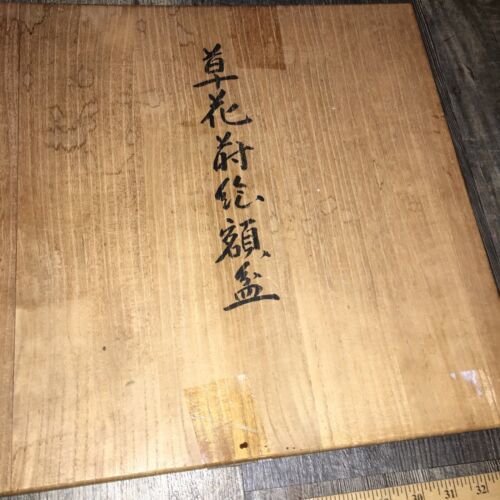 草花蒔絵額盆
32